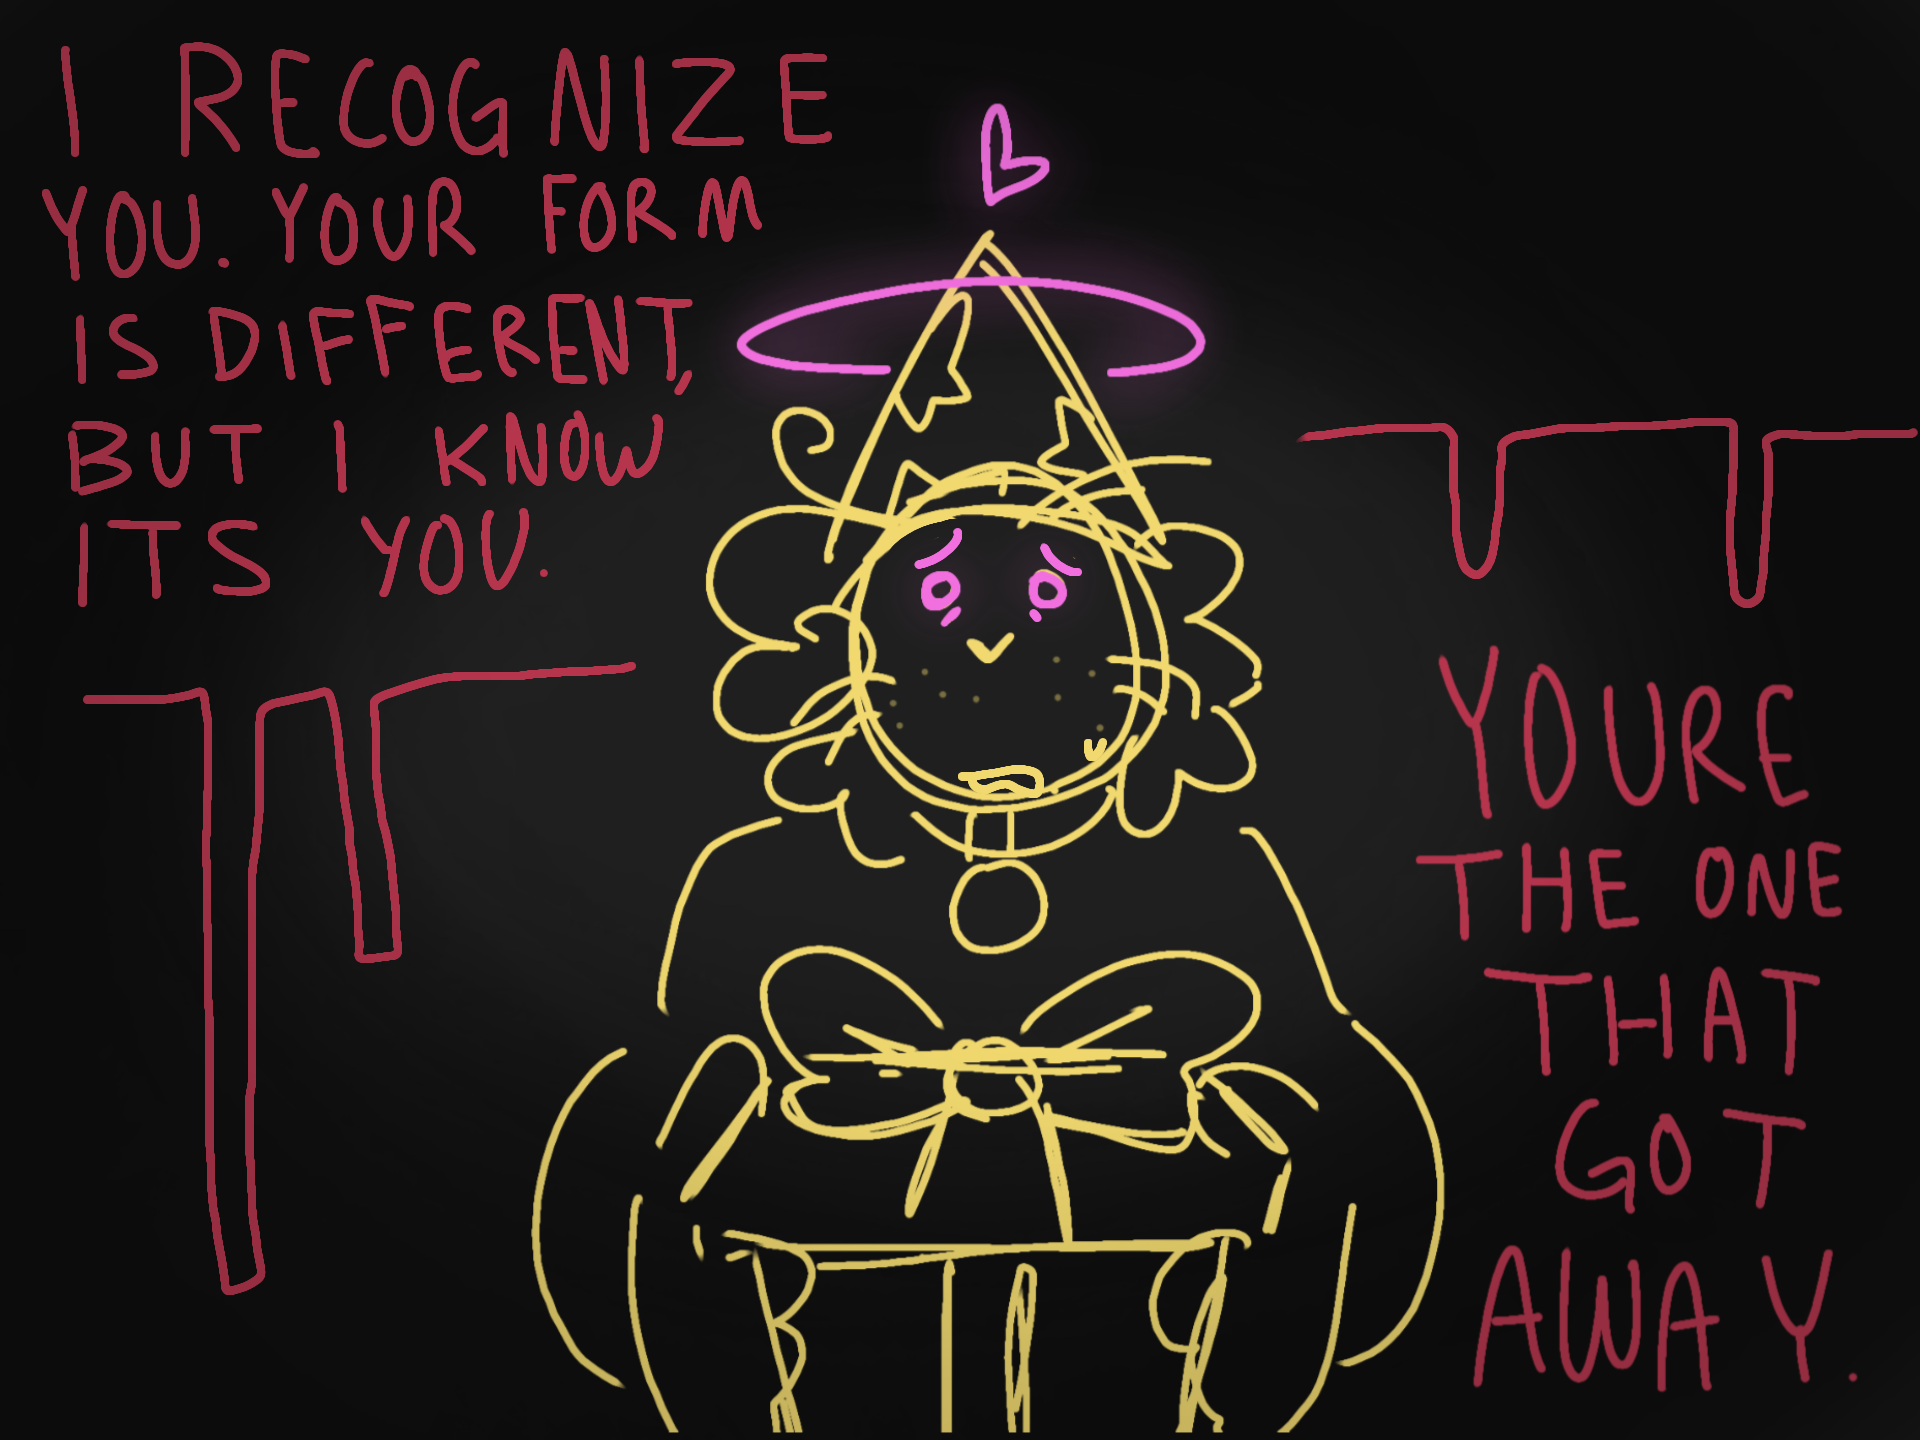 I RECOGNIZE
YOU. YOUR FORM
IS DIFFERENT,
BUT I KNOW
ITS YOU.
YOURE
THE ONE
THAT
GOT
AWAY.